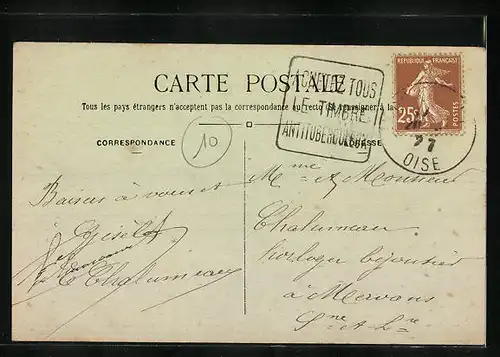 CARTE POSTALE
Tous les pays étrangers n'acceptent pas la correspondance au recto (se renseigner à la
CORRESPONDANCE
ADRESSE
10
ACHETEZ TOUS
LE TIMBRE
ANTITUBERCULEUX
REPUBLIQUE FRANÇAISE
25c
POSTES
27
OISE
Baisers à vous et
Gisèle
E Chalumeau
Mme et Monsieur
Chalumeau
horloger bijoutier
à Mervans
Sne-et-Lre